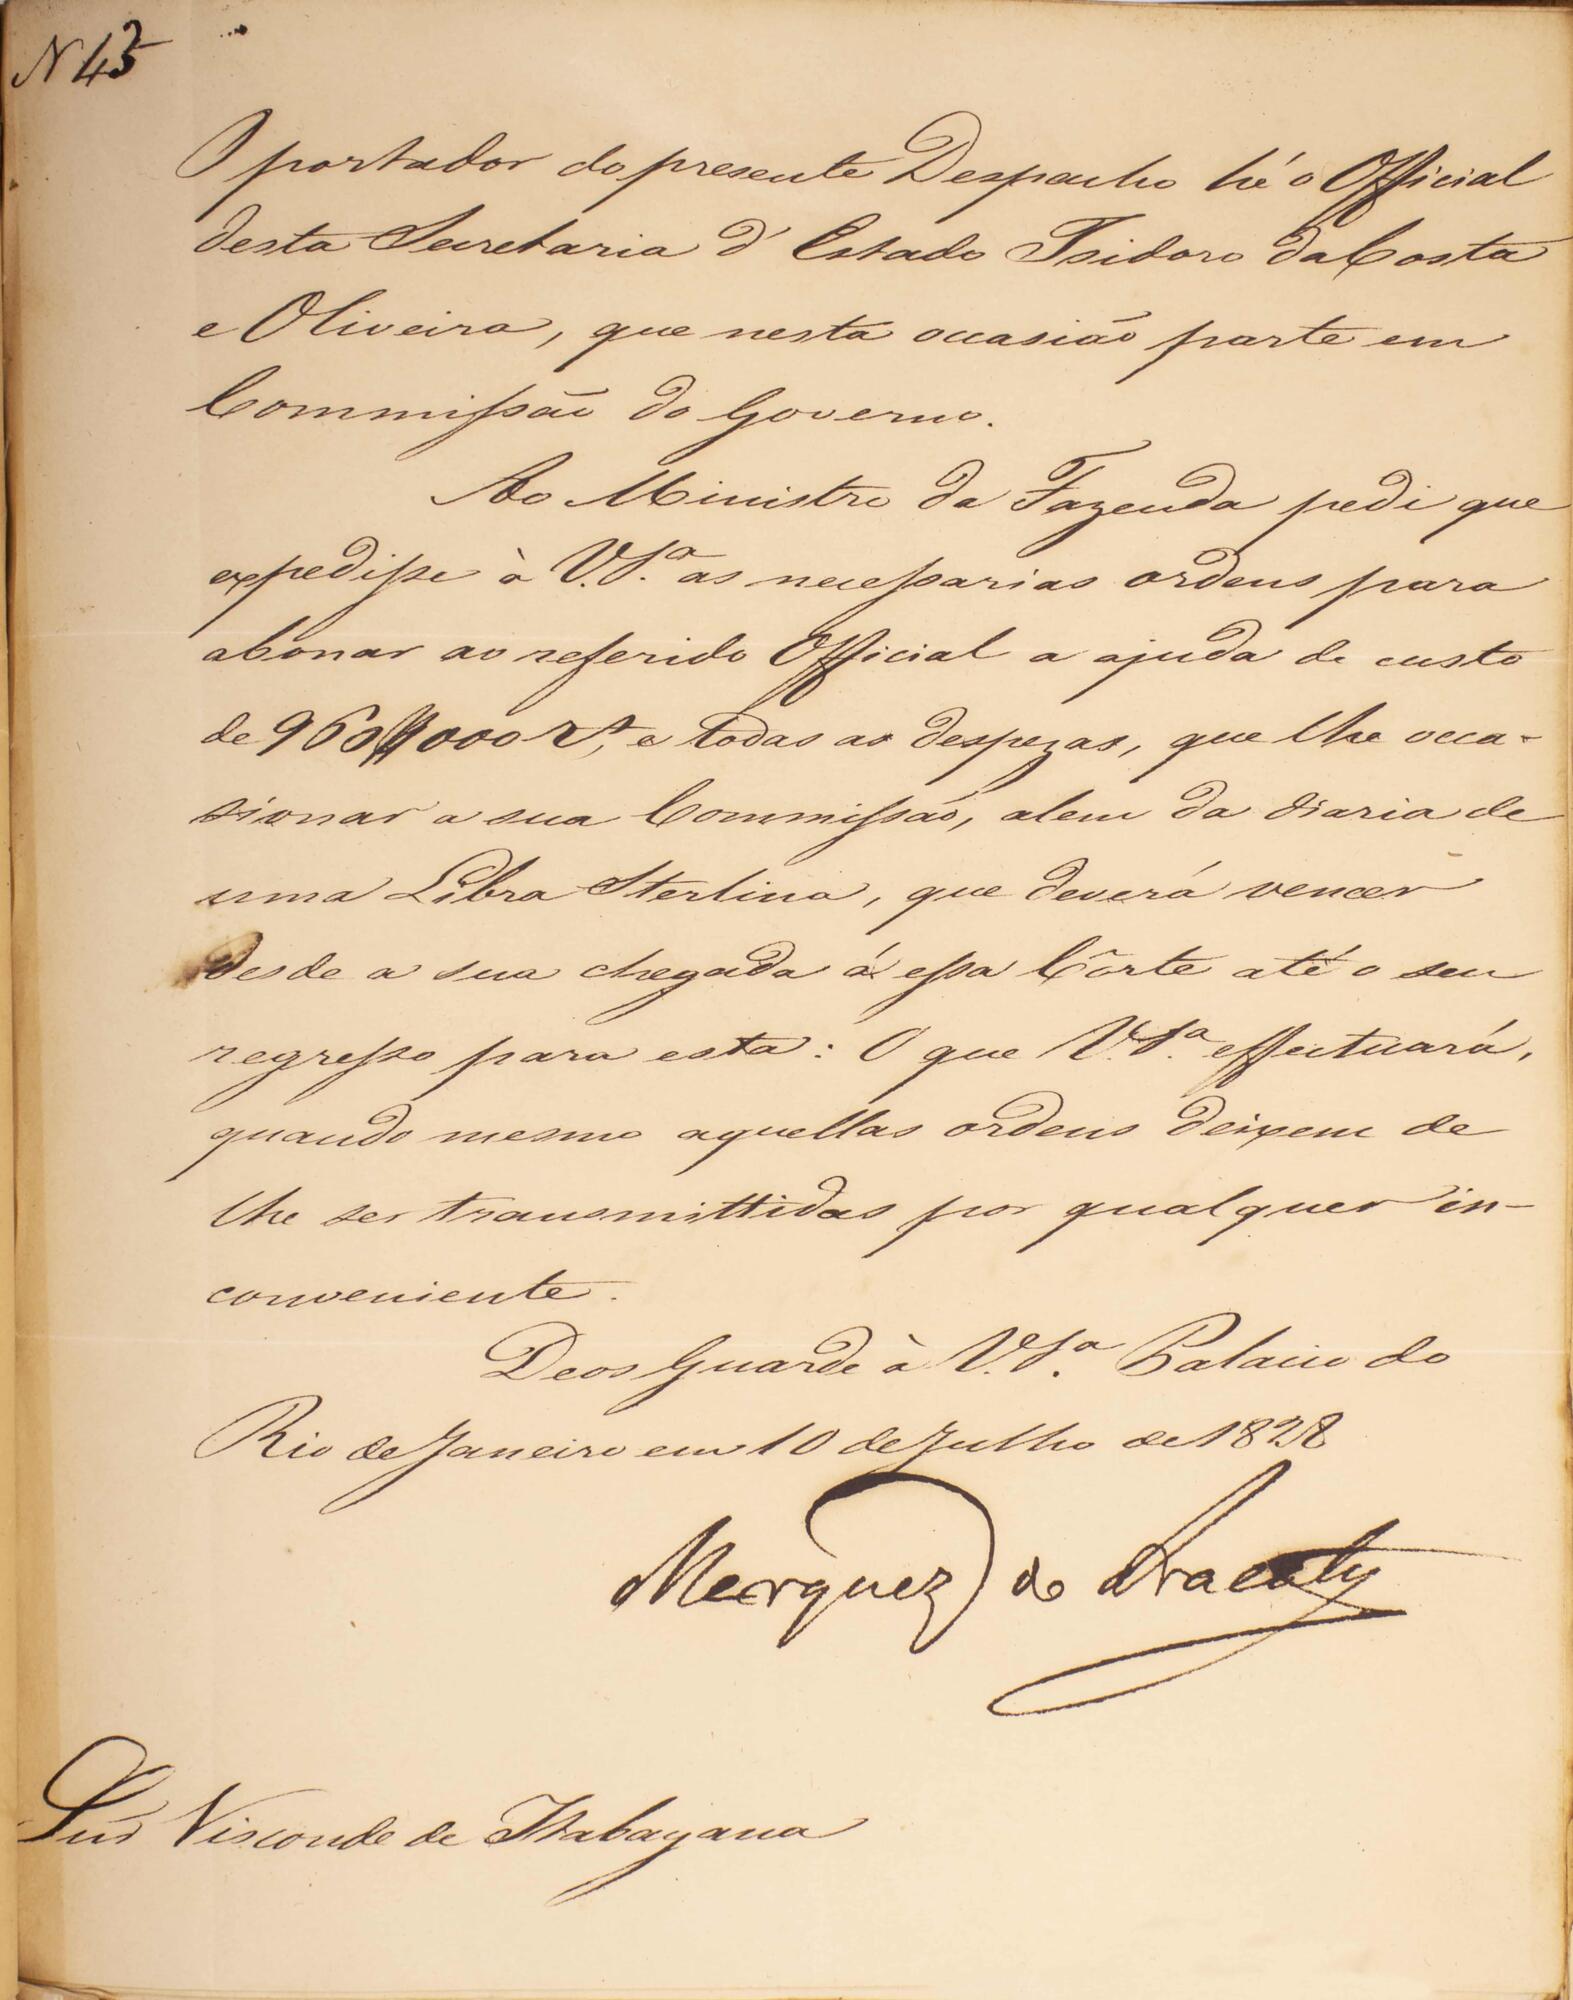 N 43
O portador do presente Despacho hé o Official
desta Secretaria d'Estado Isidoro da Costa
e Oliveira, que nesta occasião parte em
Commissão do Governo.
Ao Ministro da Fazenda pedi que
expedisse à V.S.ª as necessarias ordens para
abonar ao referido Official a ajuda de custo
de 960$000 r.s, e todas as despezas, que lhe occa-
sionar a sua Commissão, alem da diaria de
uma Libra Sterlina, que deverá vencer
desde a sua chegada á essa Côrte até o seu
regresso para esta: O que V.S.ª effectuará,
quando mesmo aquellas ordens deixem de
lhe ser transmittidas por qualquer in-
conveniente.
Deos Guarde à V.S.ª Palacio do
Rio de Janeiro em 10 de Julho de 1828
Marquez do Aracaty
Snr Visconde de Itabayana